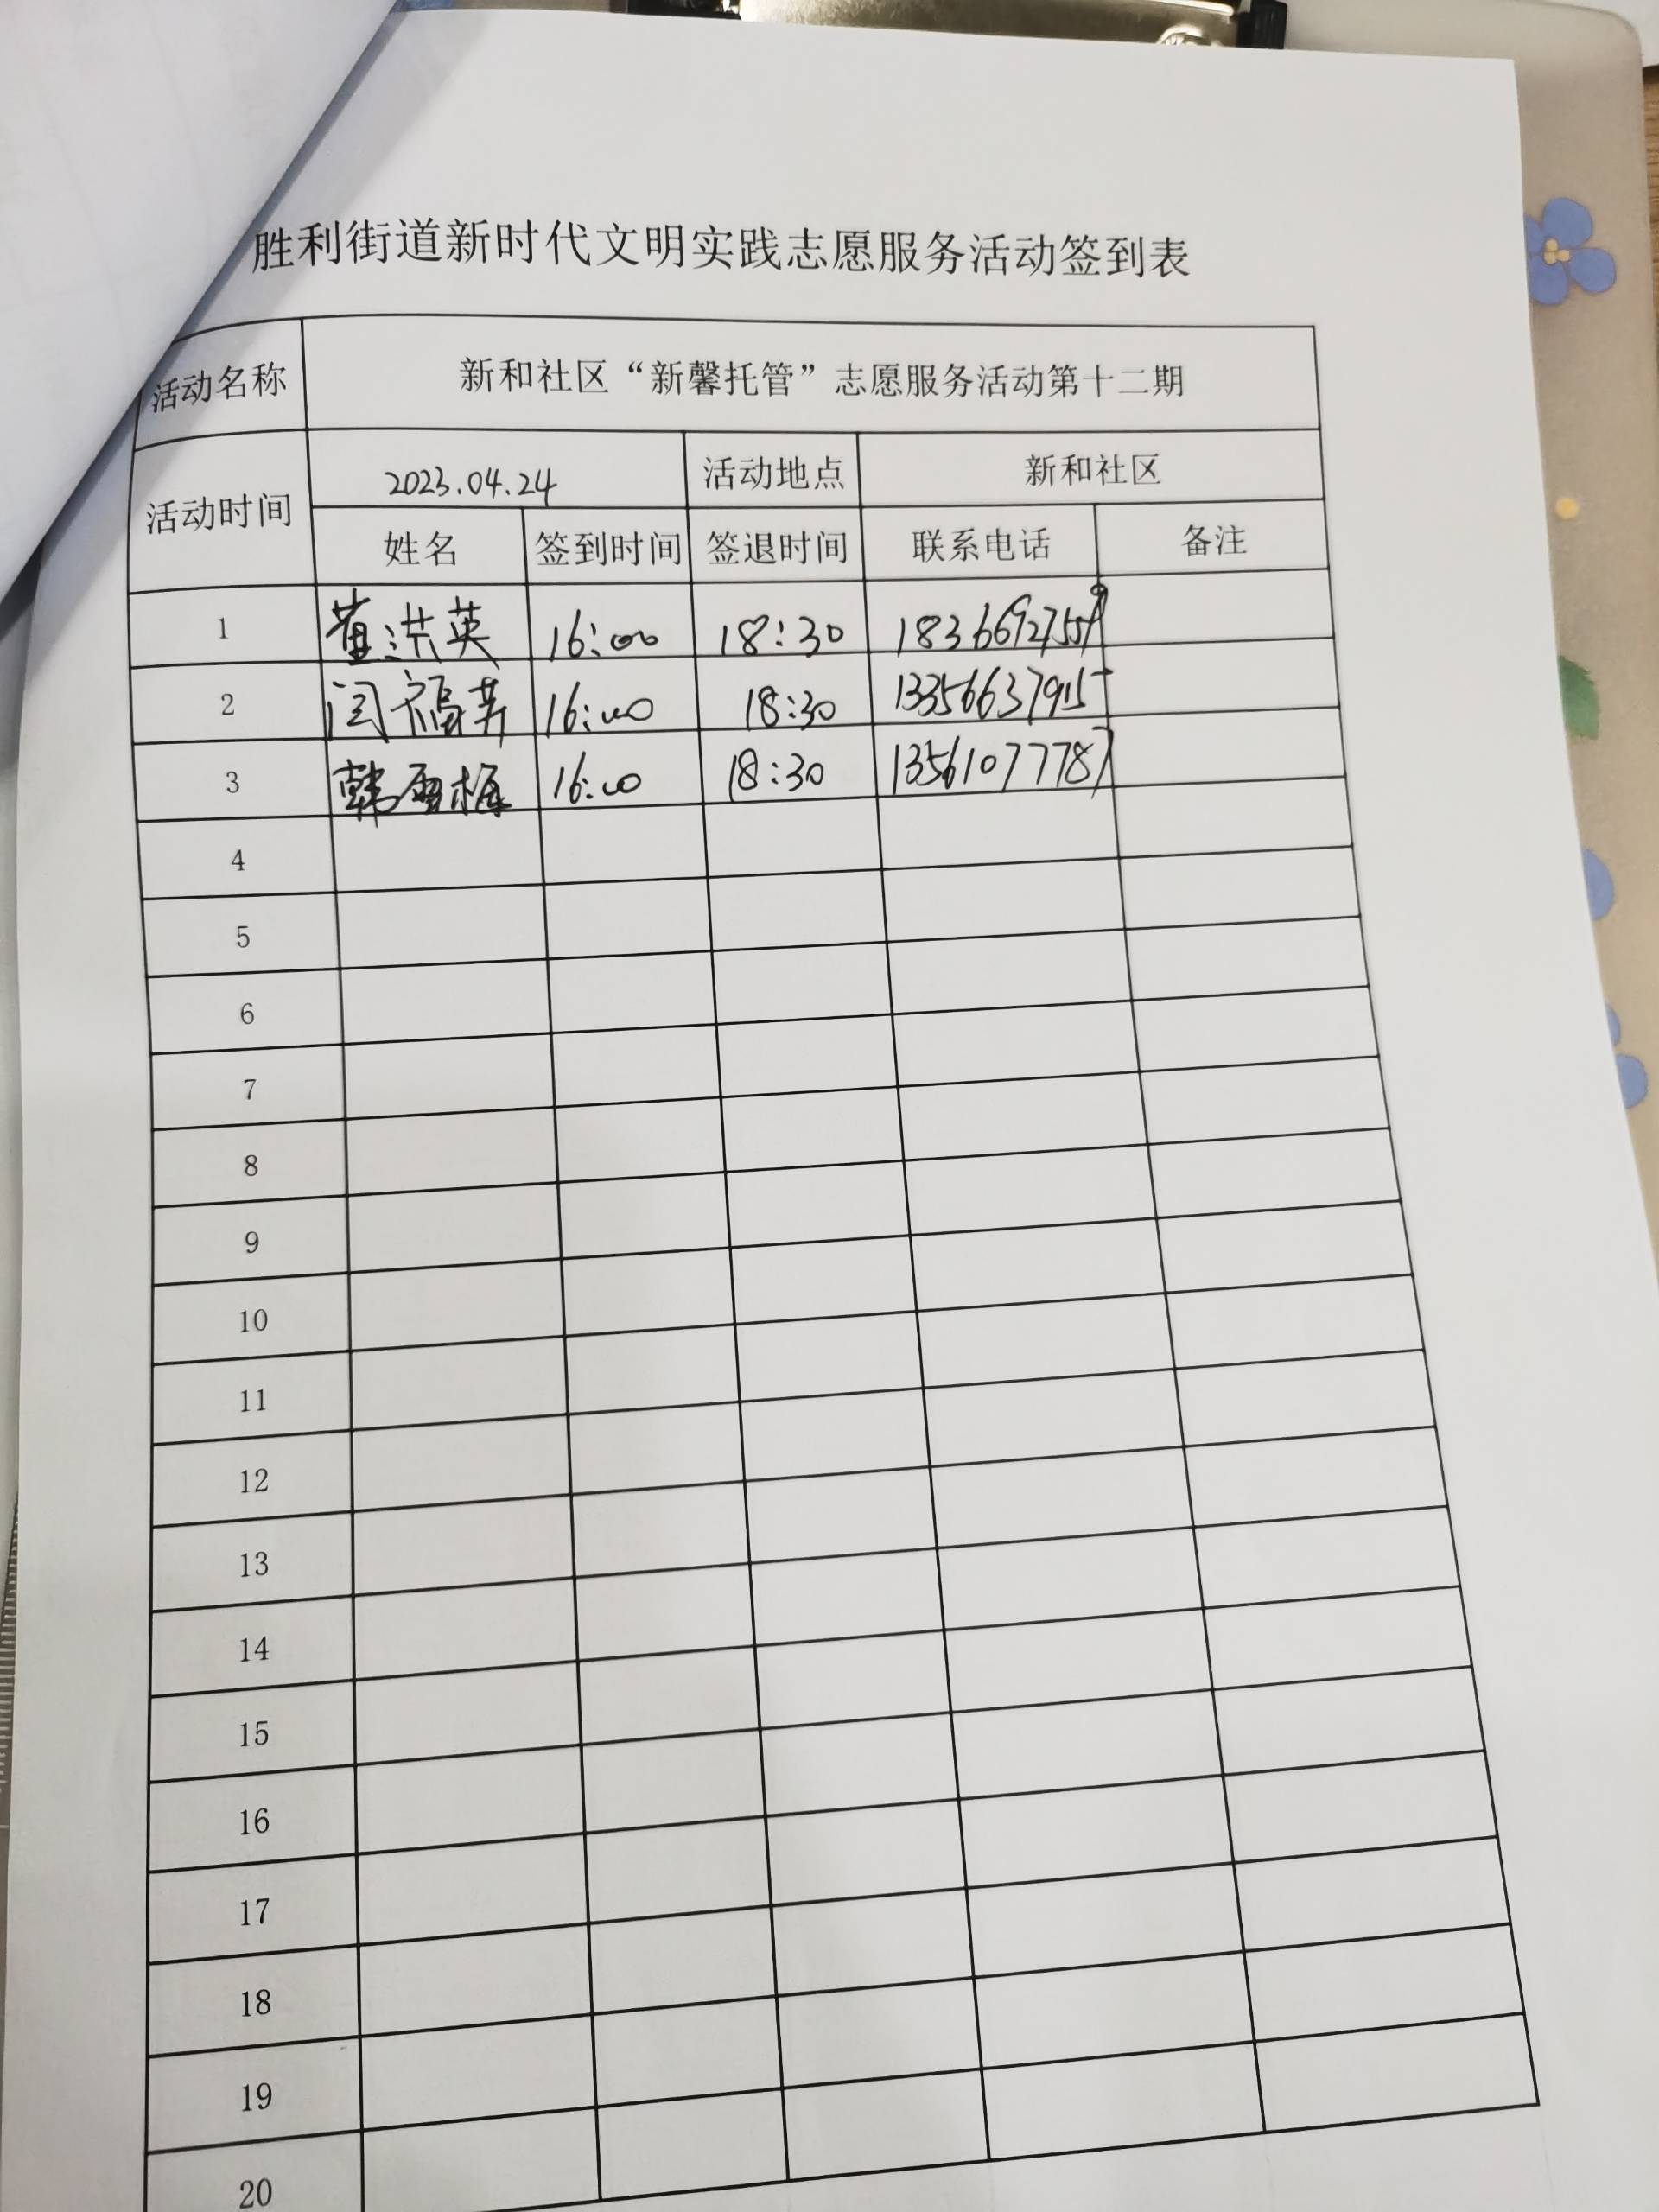 胜利街道新时代文明实践志愿服务活动签到表
活动名称 新和社区“新馨托管”志愿服务活动第十二期
活动时间 2023.04.24 活动地点 新和社区
姓名 签到时间 签退时间 联系电话 备注
1 洪英 16:00 18:30
2 闫福英 16:00 18:30 13356637915
3 韩雪梅 16:00 18:30 13561077787
4
5
6
7
8
9
10
11
12
13
14
15
16
17
18
19
20